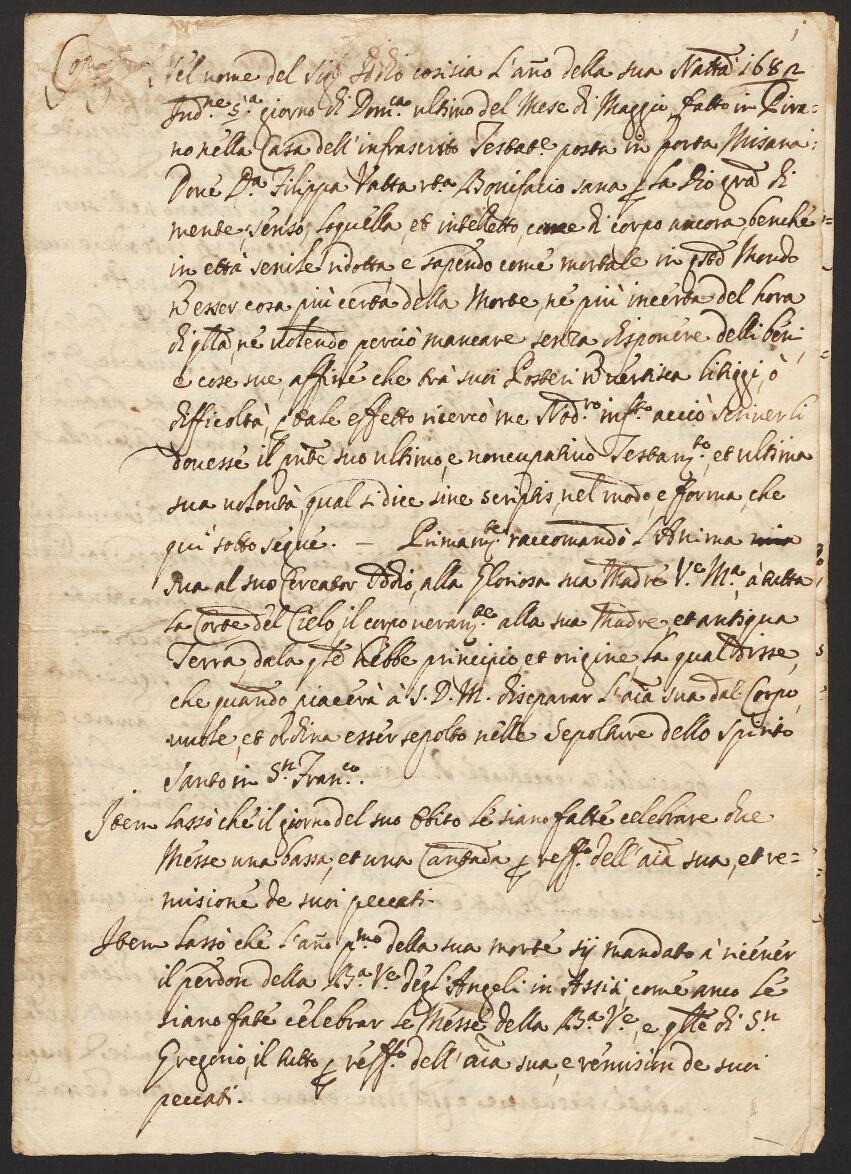 Copia
Nel nome del Sigr Iddio cosi sia L'año della sua Nattà 1682
Indne 5a giorno di Domca ultimo del Mese di Maggio, fatto in Pira=
no nella Casa dell'infrascritto Testate posta in porta Misana:
Dove Da Filippa Vatta rta Bonifacio sana p La Dio gra di
mente, senso, Loquella, et intelletto, come di corpo ancora, benche
in ettà senile ridotta, e sapendo come mortale in qsto Mondo
ñ esser cosa più certa della Morte, ne più incerta del hora
di qlla, ne volendo perciò mancare senza disponere delli beni
e cose sue, affine che trà suoi Posteri ñ vertisca litiggi, ò
difficoltà, p tale effetto ricercò me Nodro infto acciò scriver li
dovesse il pnte suo ultimo, e noncupativo Testamto, et ultima
sua volontà, qual si dice sine scriptis, nel modo, e forma, che
qui sotto segue. — Primamte raccomandò L'Anima mia
sua al suo Creator Iddio, alla Gloriosa sua Madre Ve Ma, à tutta
La Corte del Cielo il corpo veramte alla sua Madre, et antiqua
Terra, dala qle hebbe principio et origine La qual disse,
che quando piacerà à S. D. M. di separar L'aia sua dal Corpo,
vuole, et ordina esser sepolto nelle Sepolture dello Spirito
Santo in Sn Franco.
Item Lassò che il giorno del suo Obito Le siano fatte celebrare due
Messe una bassa, et una Cantada p reffo dell'aia sua, et re=
misione de suoi peccati.
Item Lassò che L'año pmo della sua morte sij mandato à ricever
il perdon della Ba Ve degl'Angeli in Assisi, come anco Le
siano fate celebrar Le Messe della Ba Ve, e qlle di Sn
Gregorio, il tutto p reffo dell'aia sua, e remision de suoi
peccati.